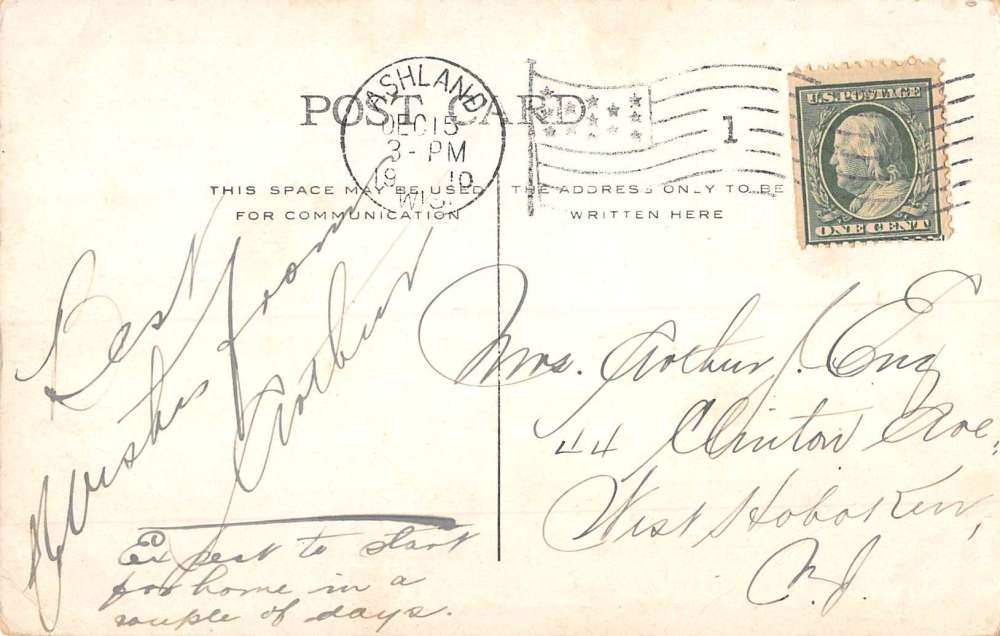 POST CARD
ASHLAND
DEC 15
3 - PM
19 10
WIS.
1
U.S. POSTAGE
ONE CENT
THIS SPACE MAY BE USED
FOR COMMUNICATION
THE ADDRESS ONLY TO BE
WRITTEN HERE
Best
Wishes from
Arthur
Expect to start
for home in a
couple of days.
Mrs. Arthur J. Eng
44 Clinton Ave,
West Hoboken,
N.J.